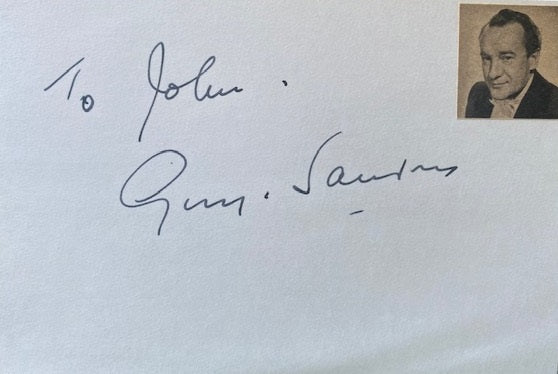 To John.
Sanders